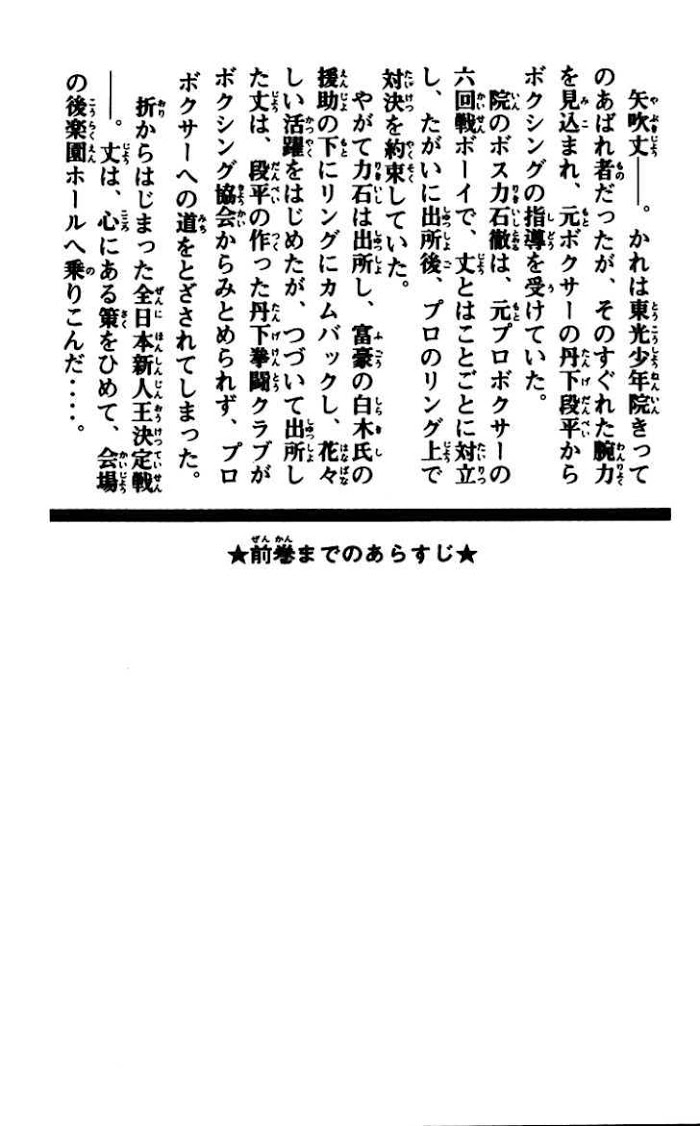 ★前巻までのあらすじ★
矢吹丈――。かれは東光少年院きって
のあばれ者だったが、そのすぐれた腕力
を見込まれ、元ボクサーの丹下段平から
ボクシングの指導を受けていた。
院のボス力石徹は、元プロボクサーの
六回戦ボーイで、丈とはことごとに対立
し、たがいに出所後、プロのリング上で
対決を約束していた。
やがて力石は出所し、富豪の白木氏の
援助の下にリングにカムバックし、花々
しい活躍をはじめたが、つづいて出所し
た丈は、段平の作った丹下拳闘クラブが
ボクシング協会からみとめられず、プロ
ボクサーへの道をとざされてしまった。
折からはじまった全日本新人王決定戦
――。丈は、心にある策をひめて、会場
の後楽園ホールへ乗りこんだ‥‥。